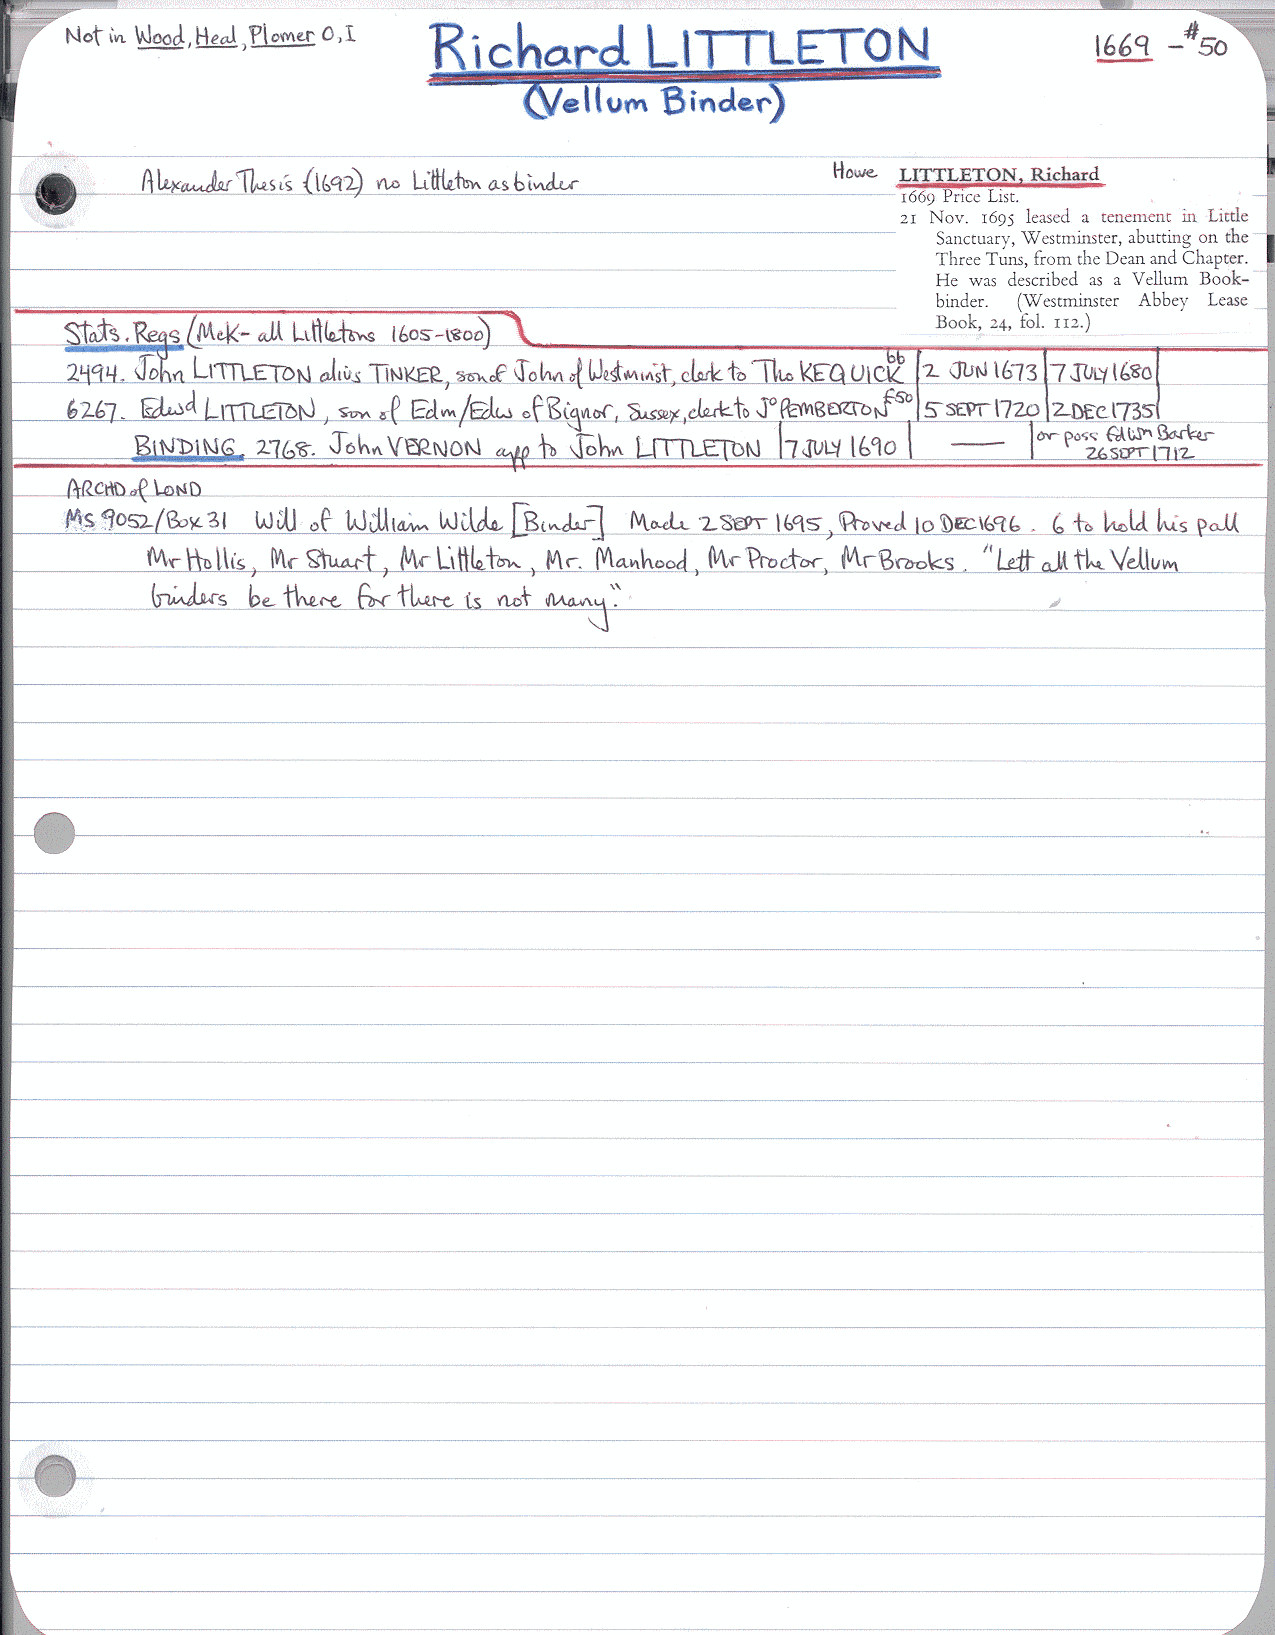 Not in Wood, Heal, Plomer O, I
Richard LITTLETON
1669 - #50
(Vellum Binder)
Alexander Thesis (1692) no Littleton as binder
Howe LITTLETON, Richard
1669 Price List.
21 Nov. 1695 leased a tenement in Little
Sanctuary, Westminster, abutting on the
Three Tuns, from the Dean and Chapter.
He was described as a Vellum Book-
binder. (Westminster Abbey Lease
Book, 24, fol. 112.)
Stats. Regs (McK- all Littletons 1605-1800)
2494. John LITTLETON alius TINKER, son of John of Westminst, clerk to Tho KEQUICK bb 2 JUN 1673 7 JULY 1680
6267. Edwd LITTLETON, son of Edm/Edw of Bignor, Sussex, clerk to Jo PEMBERTON £50 5 SEPT 1720 2 DEC 1735
BINDING. 2768. John VERNON app to John LITTLETON 7 JULY 1690 — or poss Edwin Barker
26 SEPT 1712
ARCHD of LOND
MS 9052/Box 31 Will of William Wilde [Binder] Made 2 SEPT 1695, Proved 10 DEC 1696. 6 to hold his pall
Mr Hollis, Mr Stuart, Mr Littleton, Mr. Manhood, Mr Proctor, Mr Brooks. "Lett all the Vellum
binders be there for there is not many."